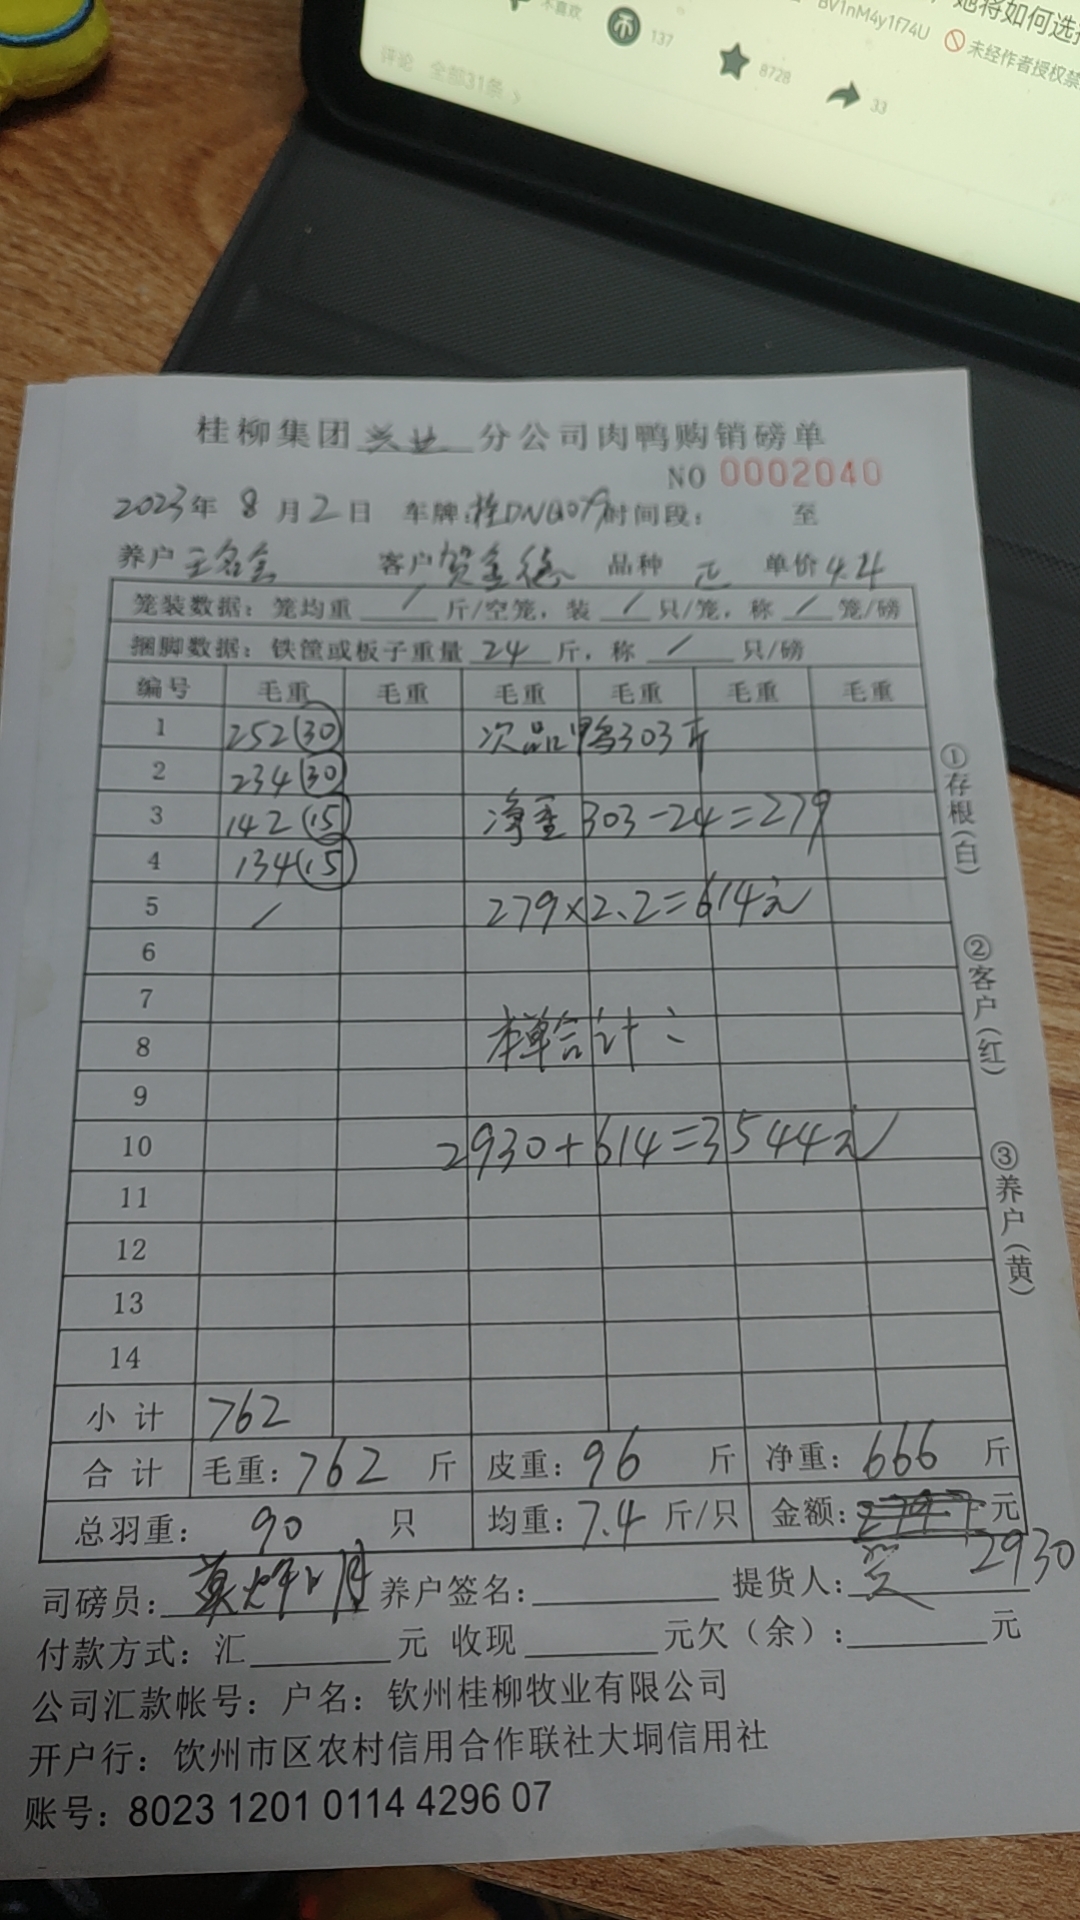 不喜欢 137 8728 33
BV1nM4y1f74U 未经作者授权禁
她将如何选择
评论 全部31条 >
桂柳集团兴业分公司肉鸭购销磅单
NO 0002040
2023年 8月2日 车牌: 时间段: 至
养户 客户贺金德 品种 正 单价4.4
笼装数据: 笼均重 / 斤/空笼, 装 / 只/笼, 称 / 笼/磅
捆脚数据: 铁筐或板子重量 24 斤, 称 / 只/磅
编号 毛重 毛重 毛重 毛重 毛重 毛重
1 252(30) 次品鸭303斤
2 234(30)
3 142(15) 净重303-24=279
4 134(15)
5 / 279×2.2=614元
6
7
8 本单合计:
9
10 2930+614=3544元
11
12
13
14
小计 762
合计 毛重: 762 斤 皮重: 96 斤 净重: 666 斤
总羽重: 90 只 均重: 7.4 斤/只 金额: 元
2930
司磅员: 养户签名: 提货人:
付款方式: 汇 元 收现 元欠(余): 元
公司汇款帐号: 户名: 钦州桂柳牧业有限公司
开户行: 钦州市区农村信用合作联社大垌信用社
账号: 8023 1201 0114 4296 07
①存根(白)
②客户(红)
③养户(黄)